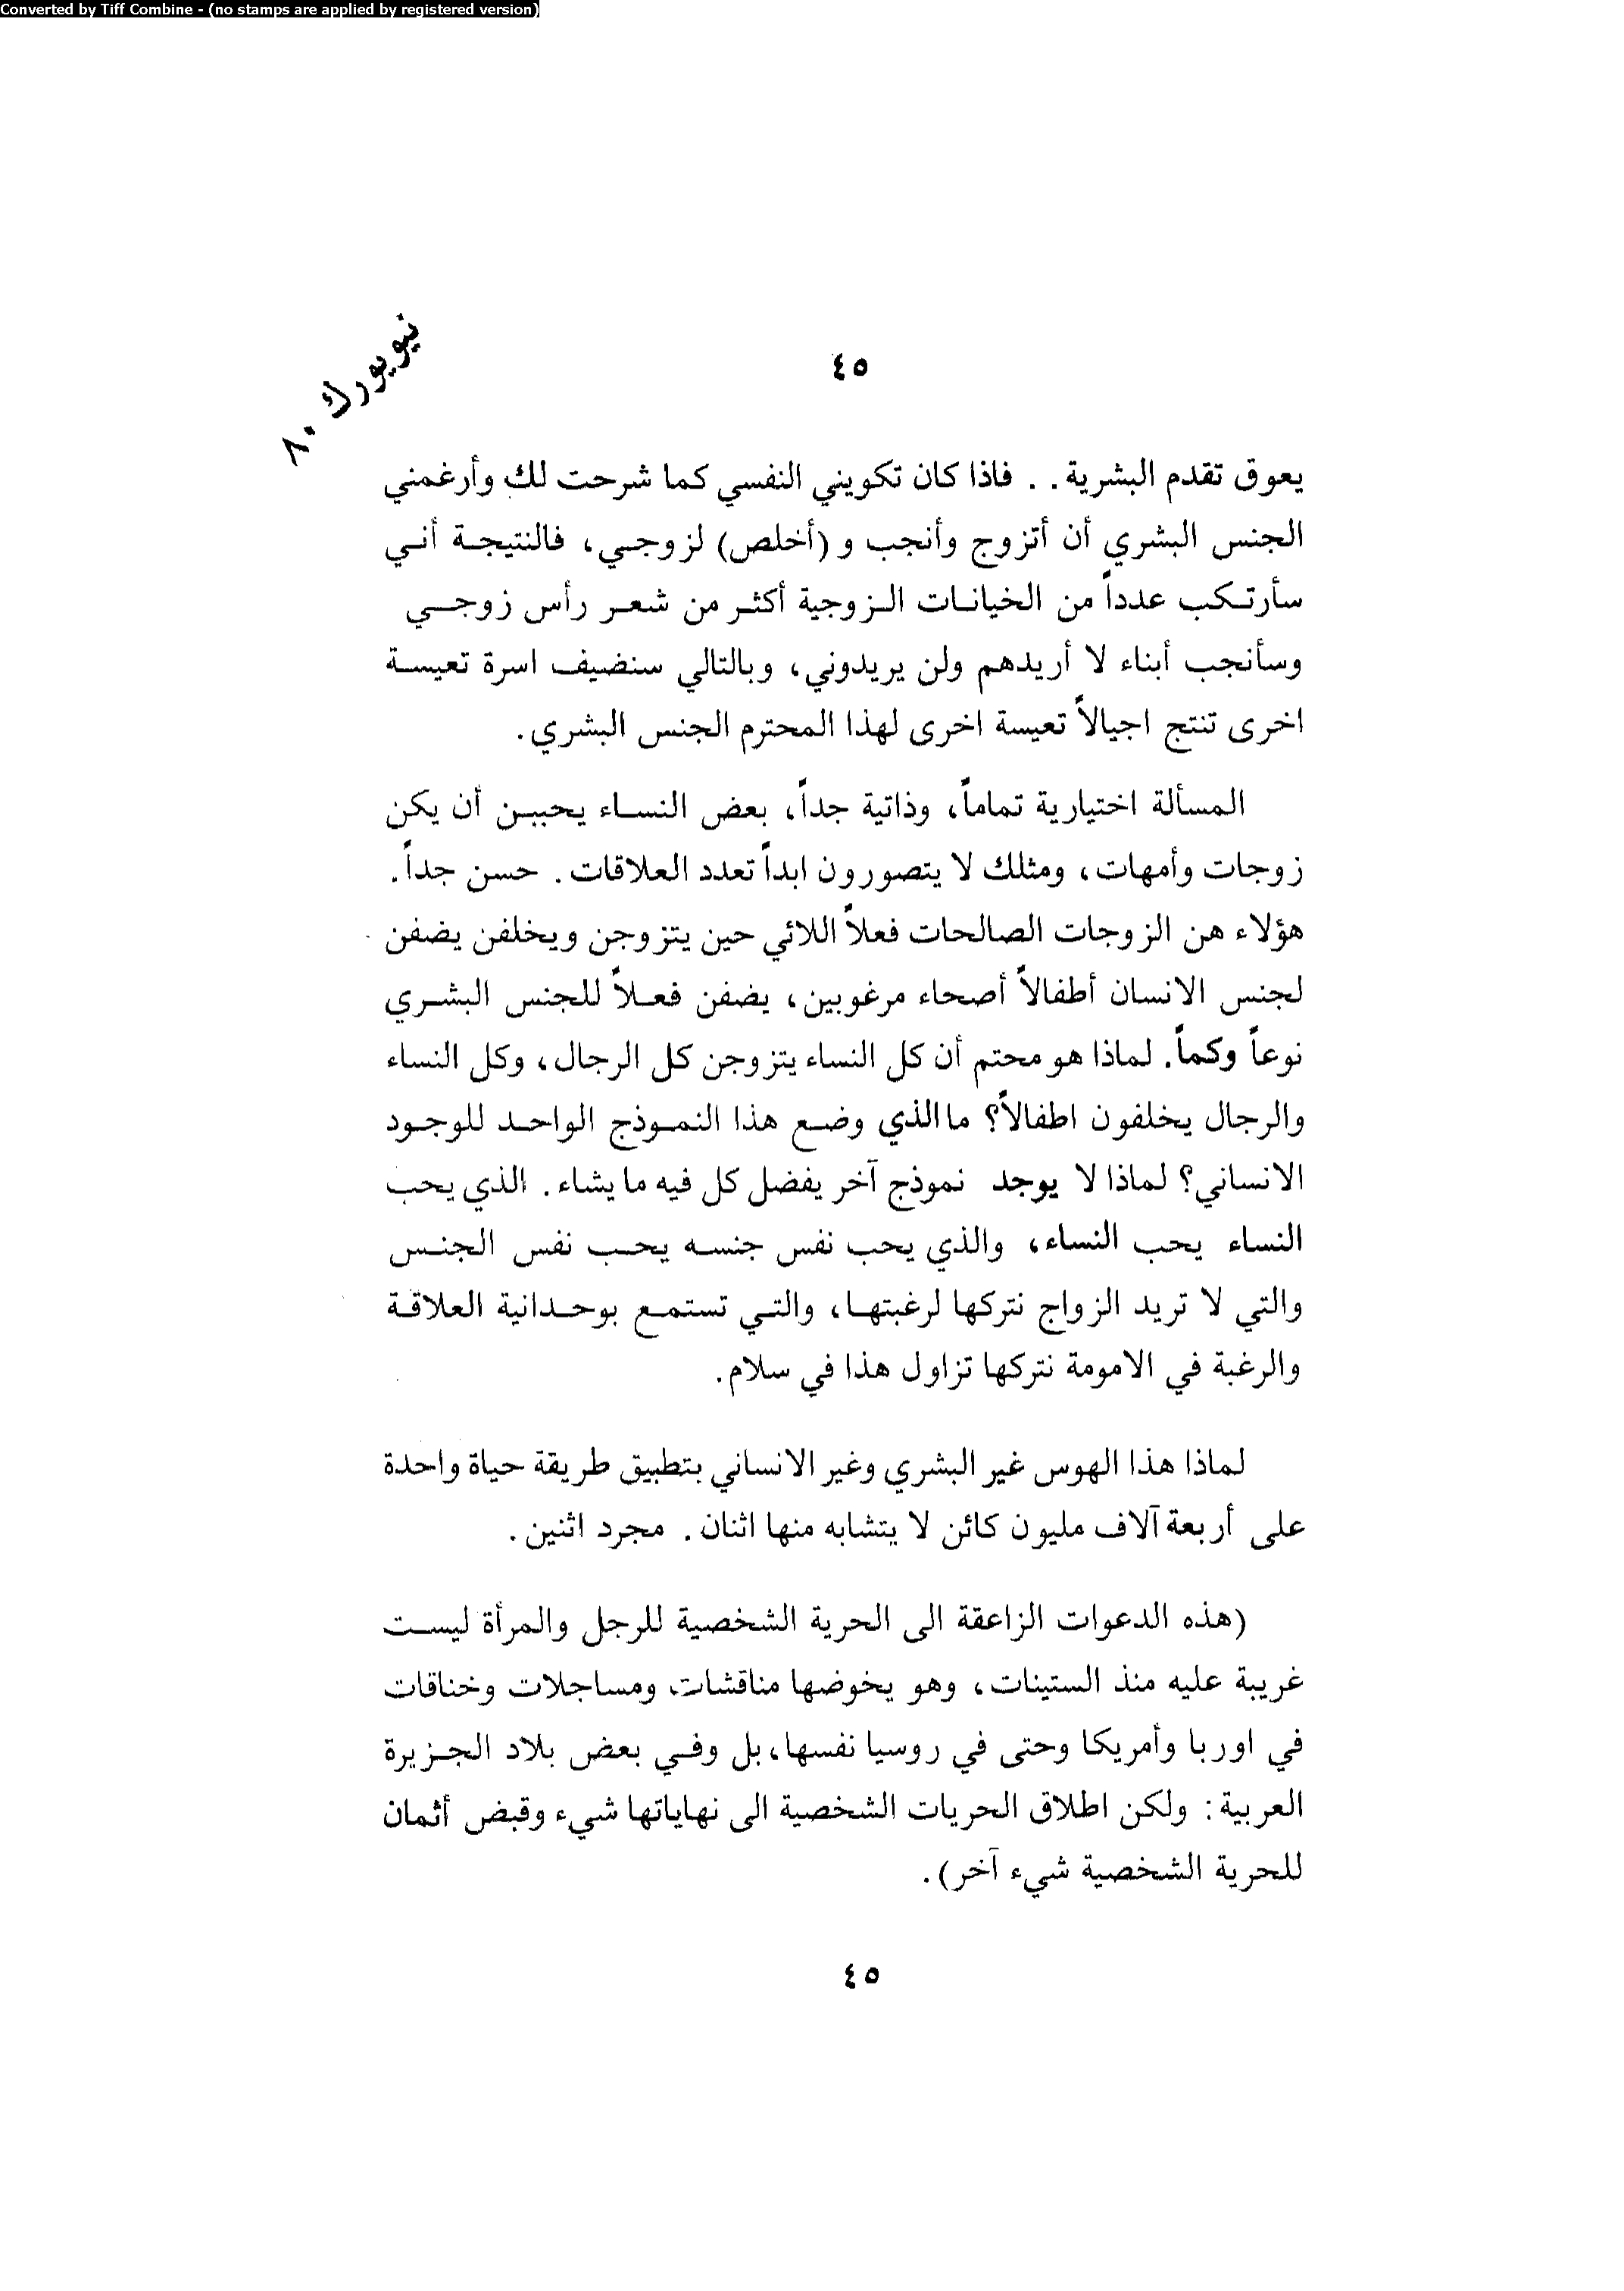 Converted by Tiff Combine - (no stamps are applied by registered version)
نيويورك ٨٠
٤٥
يعوق تقدم البشرية . . فاذا كان تكويني النفسي كما شرحت لك وأرغمني
الجنس البشري أن أتزوج وأنجب و (أخلص) لزوجي، فالنتيجة أني
سأرتكب عدداً من الخيانات الزوجية أكثر من شعر رأس زوجي
وسأنجب أبناء لا أريدهم ولن يريدوني، وبالتالي سنضيف اسرة تعيسة
اخرى تنتج اجيالاً تعيسة اخرى لهذا المحترم الجنس البشري.
المسألة اختيارية تماماً، وذاتية جداً، بعض النساء يحببن أن يكن
زوجات وأمهات، ومثلك لا يتصورون ابداً تعدد العلاقات. حسن جداً.
هؤلاء هن الزوجات الصالحات فعلاً اللائي حين يتزوجن ويخلفن يضفن
لجنس الانسان أطفالاً أصحاء مرغوبين، يضفن فعلاً للجنس البشري
نوعاً وكماً. لماذا هو محتم أن كل النساء يتزوجن كل الرجال، وكل النساء
والرجال يخلفون اطفالاً؟ ما الذي وضع هذا النموذج الواحد للوجود
الانساني؟ لماذا لا يوجد نموذج آخر يفضل كل فيه ما يشاء. الذي يحب
النساء يحب النساء، والذي يحب نفس جنسه يحب نفس الجنس
والتي لا تريد الزواج نتركها لرغبتها، والتي تستمع بوحدانية العلاقة
والرغبة في الامومة نتركها تزاول هذا في سلام.
لماذا هذا الهوس غير البشري وغير الانساني بتطبيق طريقة حياة واحدة
على أربعة آلاف مليون كائن لا يتشابه منها اثنان. مجرد اثنين.
(هذه الدعوات الزاعقة الى الحرية الشخصية للرجل والمرأة ليست
غريبة عليه منذ الستينات، وهو يخوضها مناقشات ومساجلات وخناقات
في اوربا وأمريكا وحتى في روسيا نفسها، بل وفي بعض بلاد الجزيرة
العربية: ولكن اطلاق الحريات الشخصية الى نهاياتها شيء وقبض أثمان
للحرية الشخصية شيء آخر).
٤٥